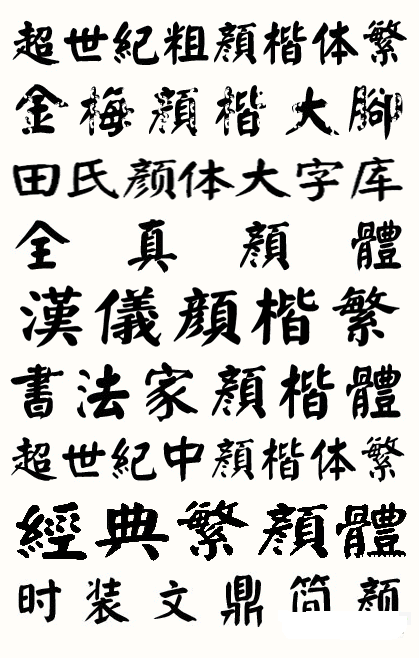 超世紀粗顏楷体繁
金梅顏楷大腳
田氏颜体大字库
全真顏體
漢儀顏楷繁
書法家顏楷體
超世紀中顏楷体繁
經典繁顏體
时装文鼎简颜